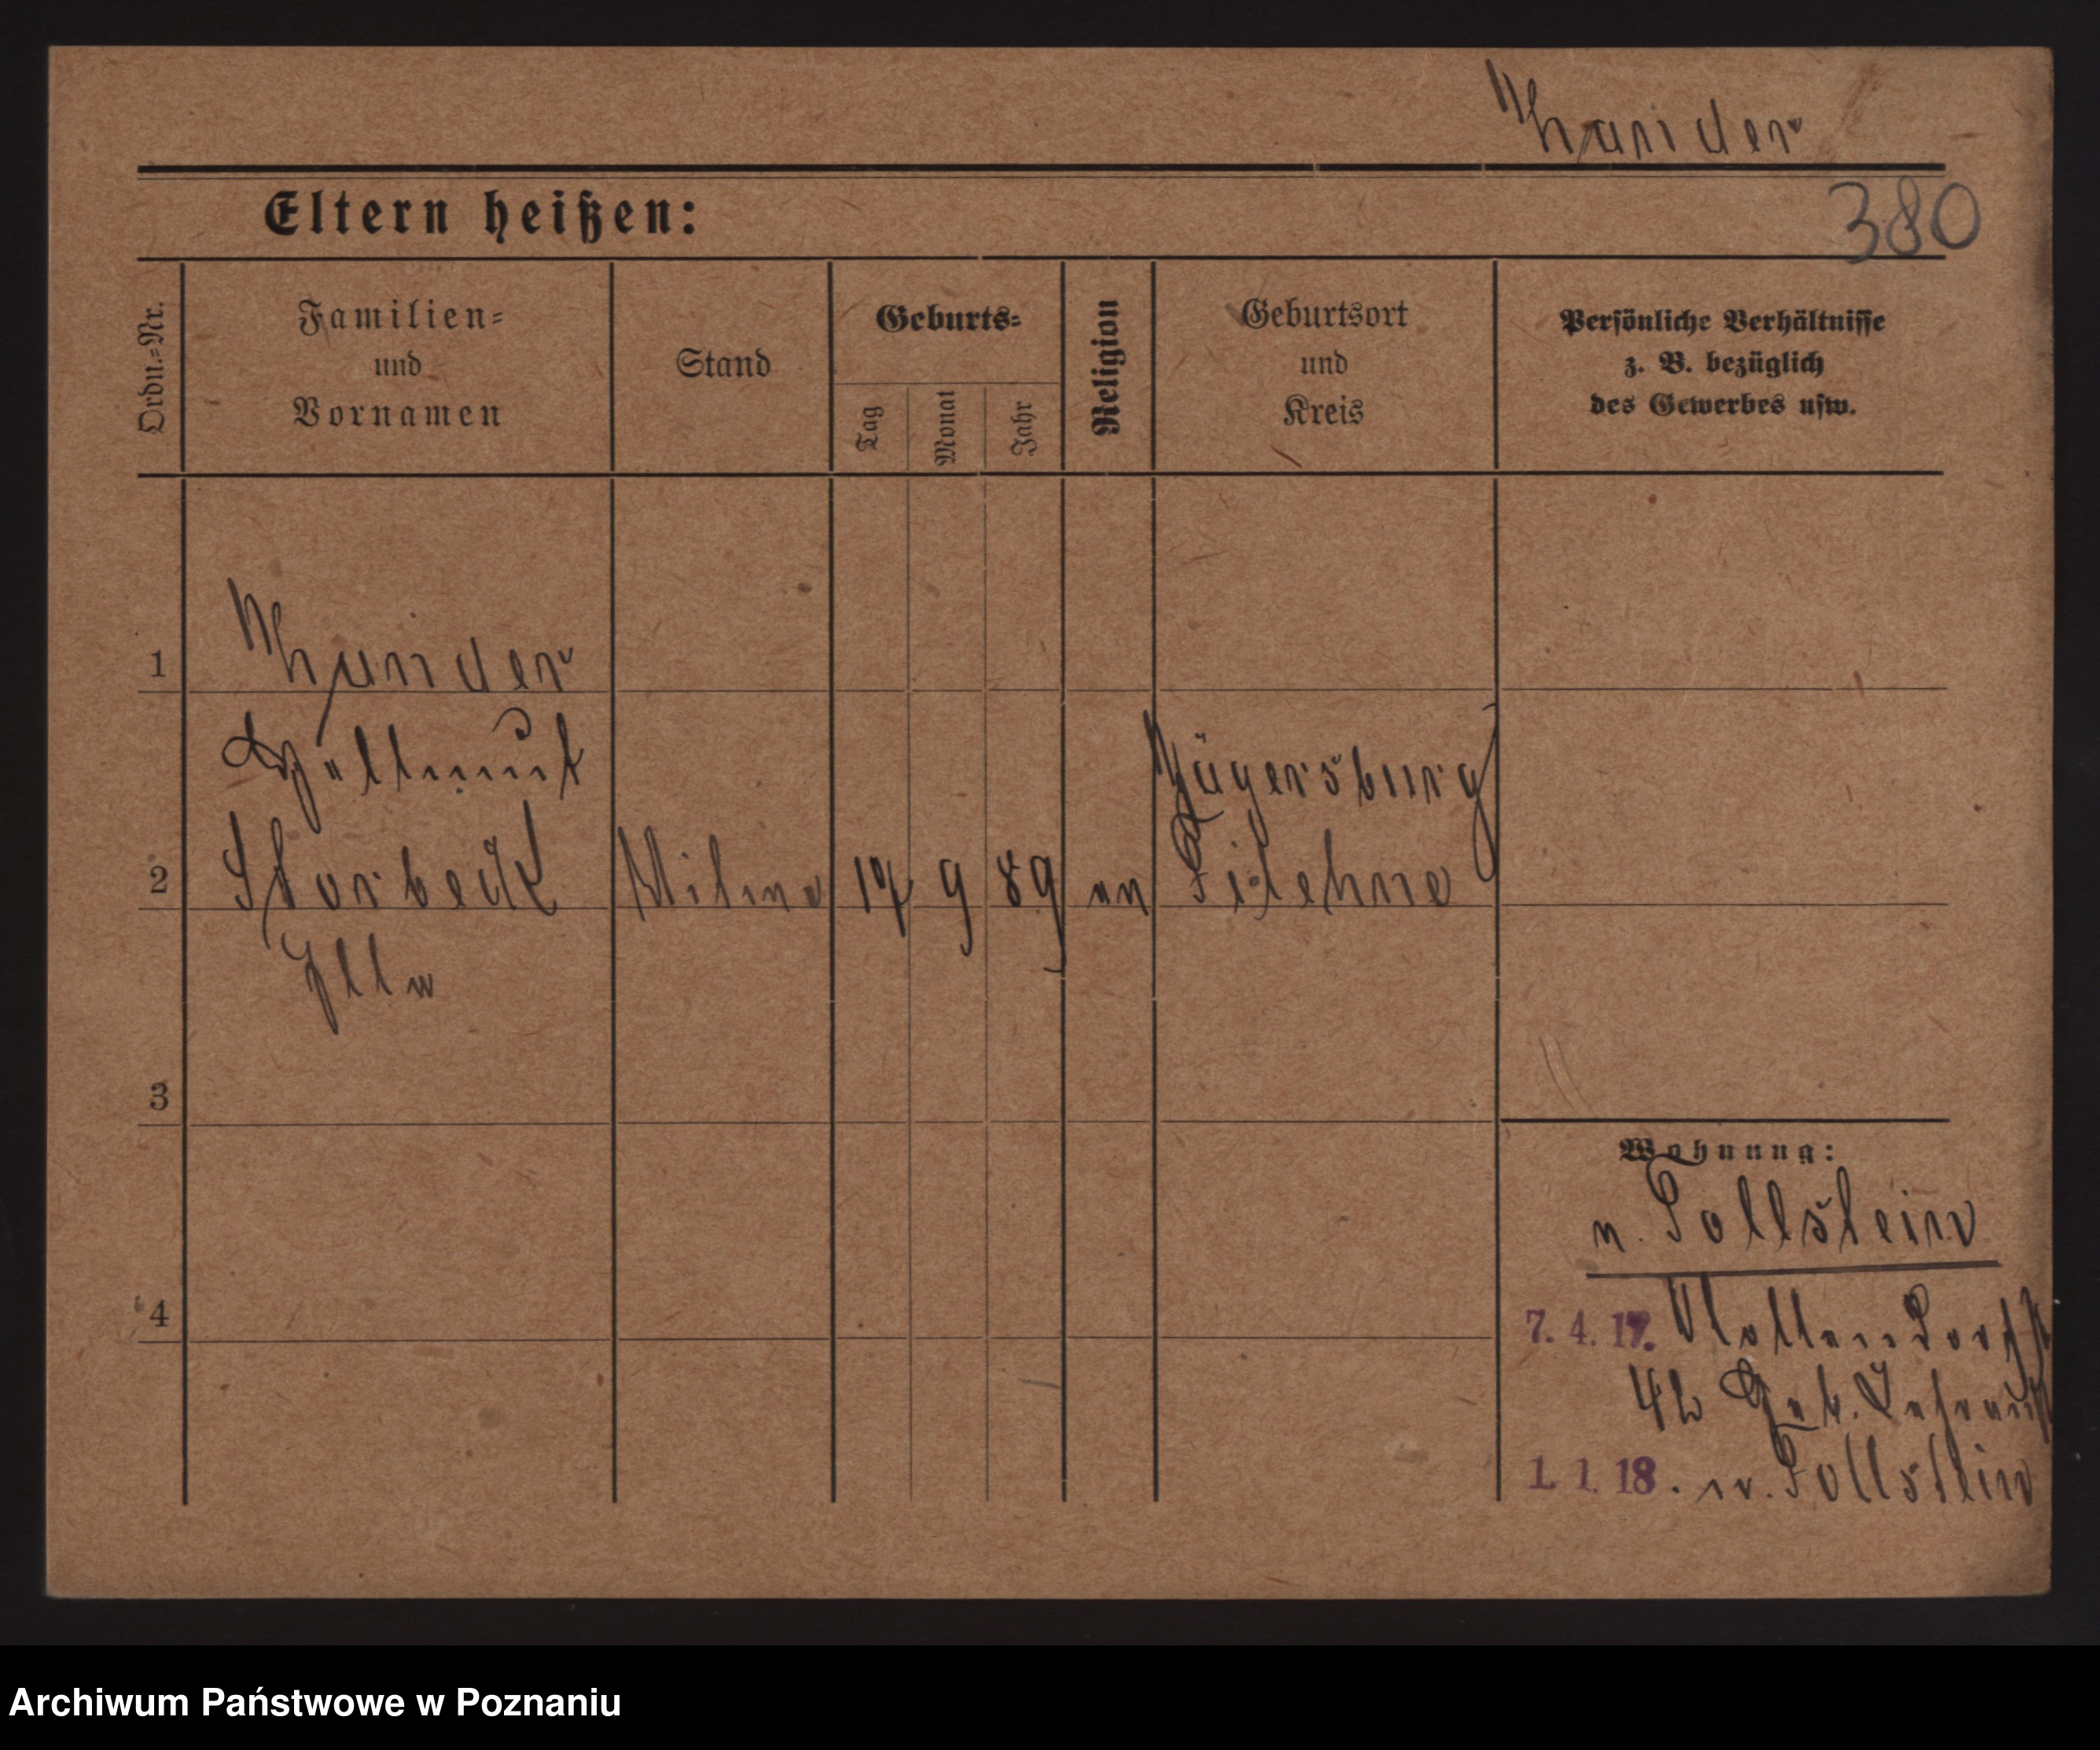 380
Eltern heißen:
Ordn.-Nr.
Familien-
und
Vornamen
Stand
Geburts-
Tag
Monat
Jahr
Religion
Geburtsort
und
Kreis
Persönliche Verhältnisse
z. B. bezüglich
des Gewerbes usw.
1
Hellmut
Jägersburg
2 Storbeck 17 9 89 Filehne
Ella
3
Wohnung:
n. Pollstein
4
7. 4. 17.
42
1. 1. 18. n. Pollstein
Archiwum Państwowe w Poznaniu